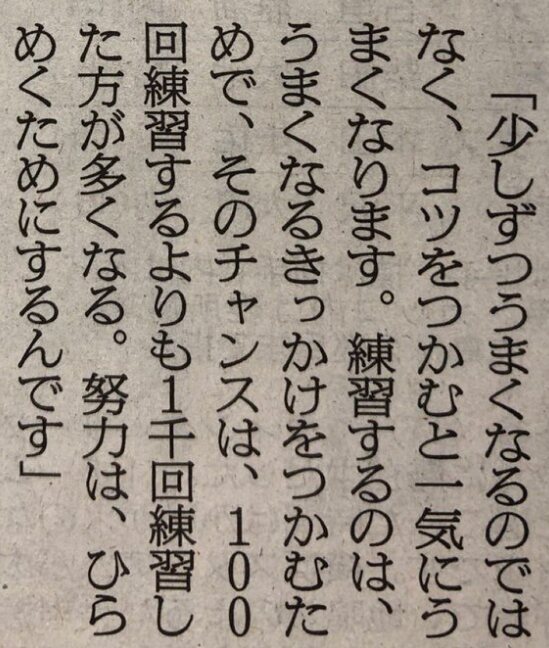 「少しずつうまくなるのでは
なく、コツをつかむと一気にう
まくなります。練習するのは、
うまくなるきっかけをつかむた
めで、そのチャンスは、100
回練習するよりも1千回練習し
た方が多くなる。努力は、ひら
めくためにするんです」